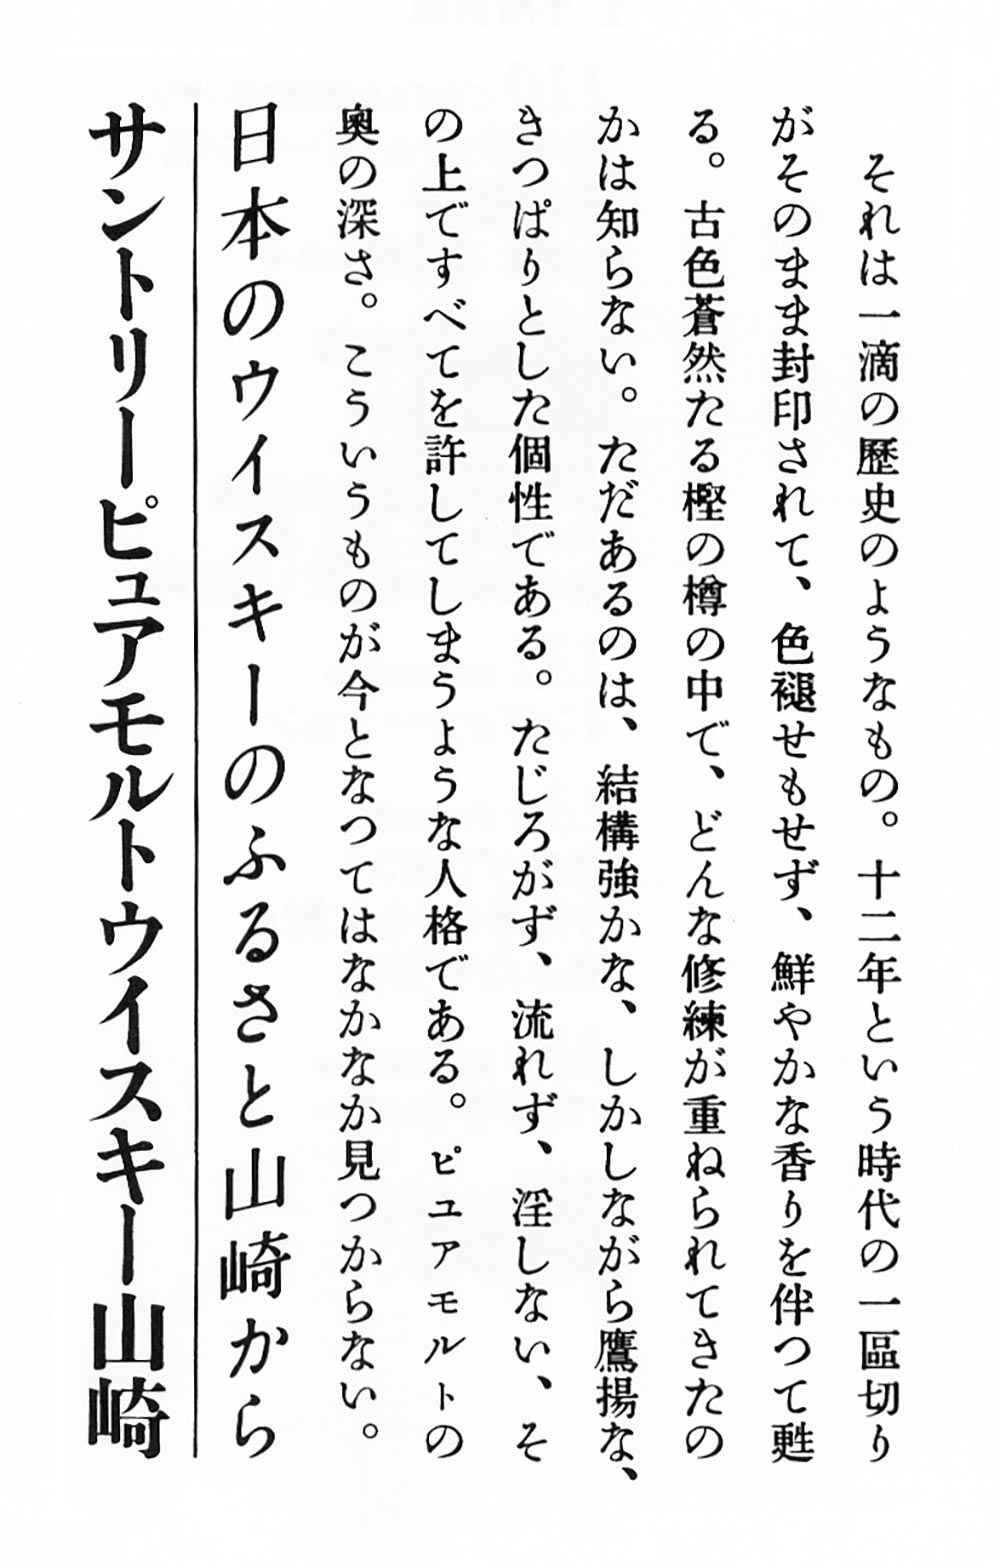 それは一滴の歷史のようなもの。十二年という時代の一區切り
がそのまま封印されて、色褪せもせず、鮮やかな香りを伴つて甦
る。古色蒼然たる樫の樽の中で、どんな修練が重ねられてきたの
かは知らない。ただあるのは、結構強かな、しかしながら鷹揚な、
きつぱりとした個性である。たじろがず、流れず、淫しない、そ
の上ですべてを許してしまうような人格である。ピュアモルトの
奥の深さ。こういうものが今となつてはなかなか見つからない。
日本のウイスキーのふるさと山崎から
サントリーピュアモルトウイスキー山崎